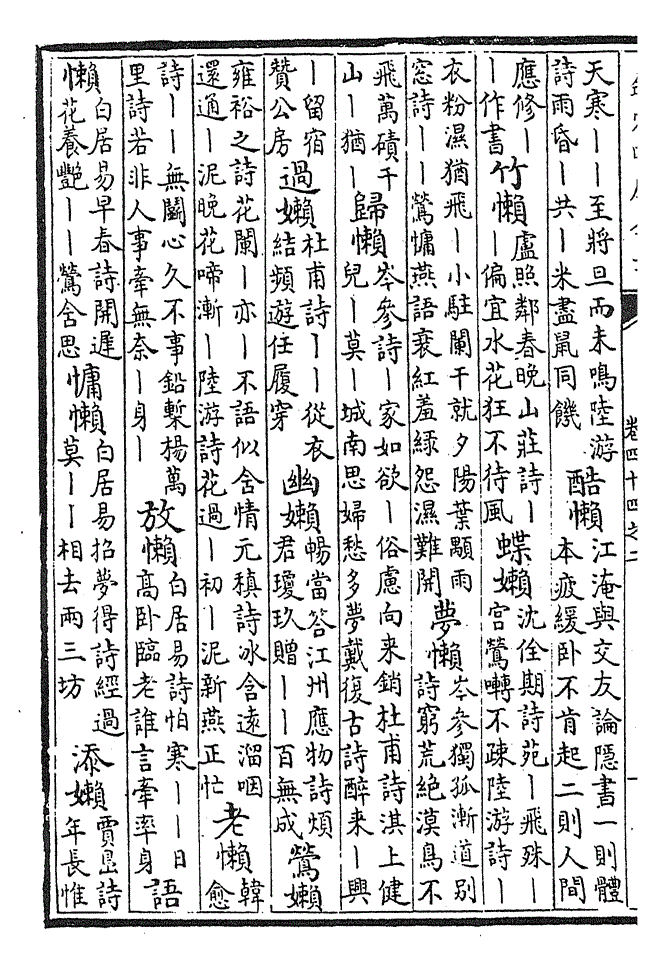 卷四十四之二
天寒丨丨至將旦而未鳴陸游
詩雨昏丨共丨米盡鼠同饑
酷懶
江淹與交友論隱書一則體
本疲緩卧不肯起二則人間
應修丨
丨作書
竹懶
盧照鄰春晚山莊詩丨
丨偏宜水花狂不待風
蝶嬾
沈佺期詩苑丨飛殊丨
宫鶯囀不疎陸游詩丨丨
衣粉濕猶飛丨小駐闌干就夕陽葉顆雨
窓詩丨丨鶯慵燕語衰紅羞緑怨濕難開
夢懶
岑參獨孤漸道别
詩窮荒絶漠鳥不
飛萬磧千
山丨猶丨
歸懶
岑參詩丨家如欲丨俗慮向来銷杜甫詩淇上健
兒丨莫丨城南思婦愁多夢戴復古詩醉来丨興
丨留宿
贊公房
過嬾
杜甫詩丨丨從衣
結頻遊任履穿
幽嬾
暢當答江州應物詩煩
君瓊玖贈丨丨百無成
鶯嬾
雍裕之詩花闌丨亦丨不語似含情元稹詩冰含遠溜咽
還適丨泥晚花啼漸丨陸游詩花過丨初丨泥新燕正忙
老懶
韓
愈
詩丨丨無鬭心久不事鉛槧楊萬
里詩若非人事牽無奈丨身丨
放懶
白居易詩怕寒丨丨日
高卧臨老誰言牽率身
語
懶
白居易早春詩開遲
花養艷丨丨鶯含思
慵懶
白居易招夢得詩經過
莫丨丨相去兩三坊
添嬾
賈島詩
年長惟